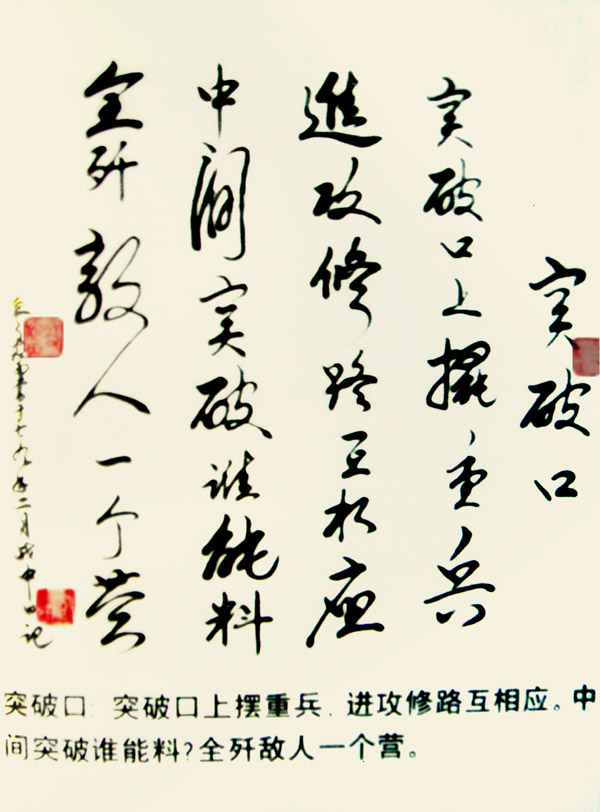 突破口
突破口上擺重兵
進攻修路互相應
中间突破谁能料
全歼敵人一个营
二月战中日记
突破口 突破口上摆重兵．进攻修路互相应。中
间突破谁能料?全歼敌人一个营。